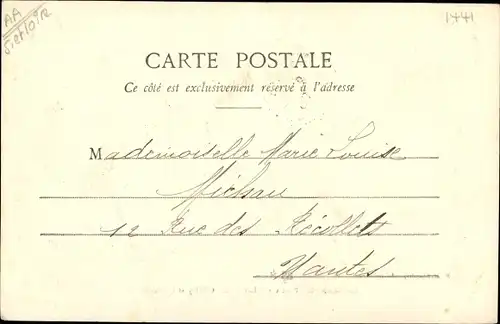 AA
1441
CARTE POSTALE
Ce côté est exclusivement réservé à l'adresse
Mademoiselle Marie Louise
Michau
12 Rue des Récollets
Nantes